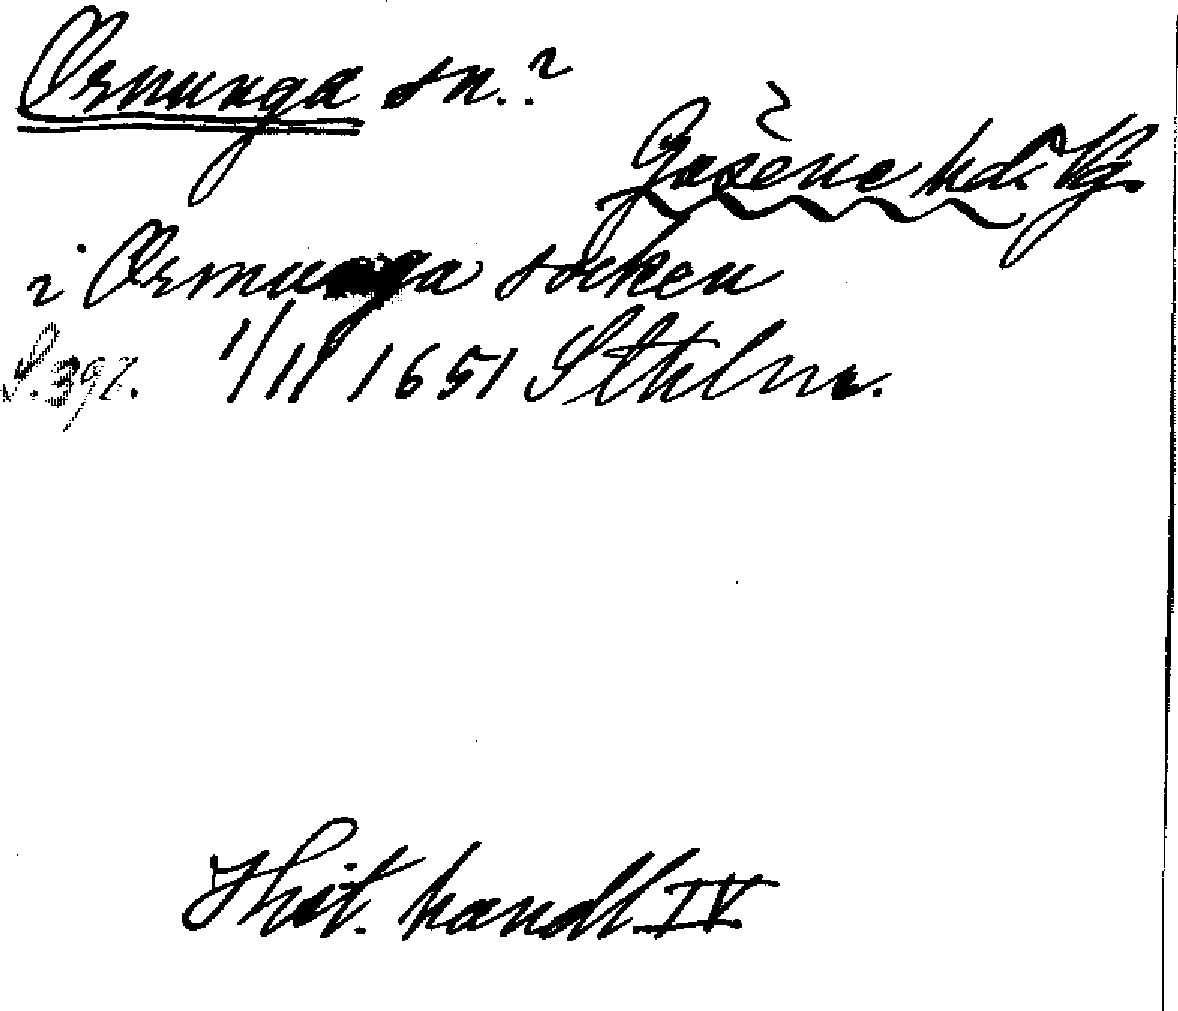 Ormunga sn.?
Gäsene hd. Vg.
i Ormunga socken
S. 397. 1/11 1651 Sthlm.
Hist. handl. IV